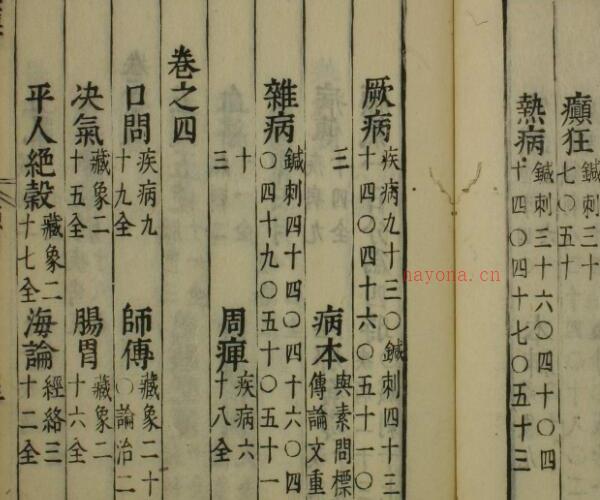 癲狂 鍼刺三十
七〇五十
熱病 鍼刺三十六〇四十〇四
十四〇四十七〇五十三
厥病 疾病九十三〇鍼刺四十三
十四〇四十六〇五十一〇
三
病本 與素問標
傳論文重
雜病 鍼刺四十四〇四十六〇四
〇四十九〇五十〇五十一
十
三
周痺 疾病六
十八全
卷之四
口問 疾病九
十九全
師傳 藏象二十
〇論治二
决氣 藏象二
十五全
腸胃 藏象二
十六全
平人絕穀 藏象二
十七全
海論 經絡三
十二全
nayona.cn